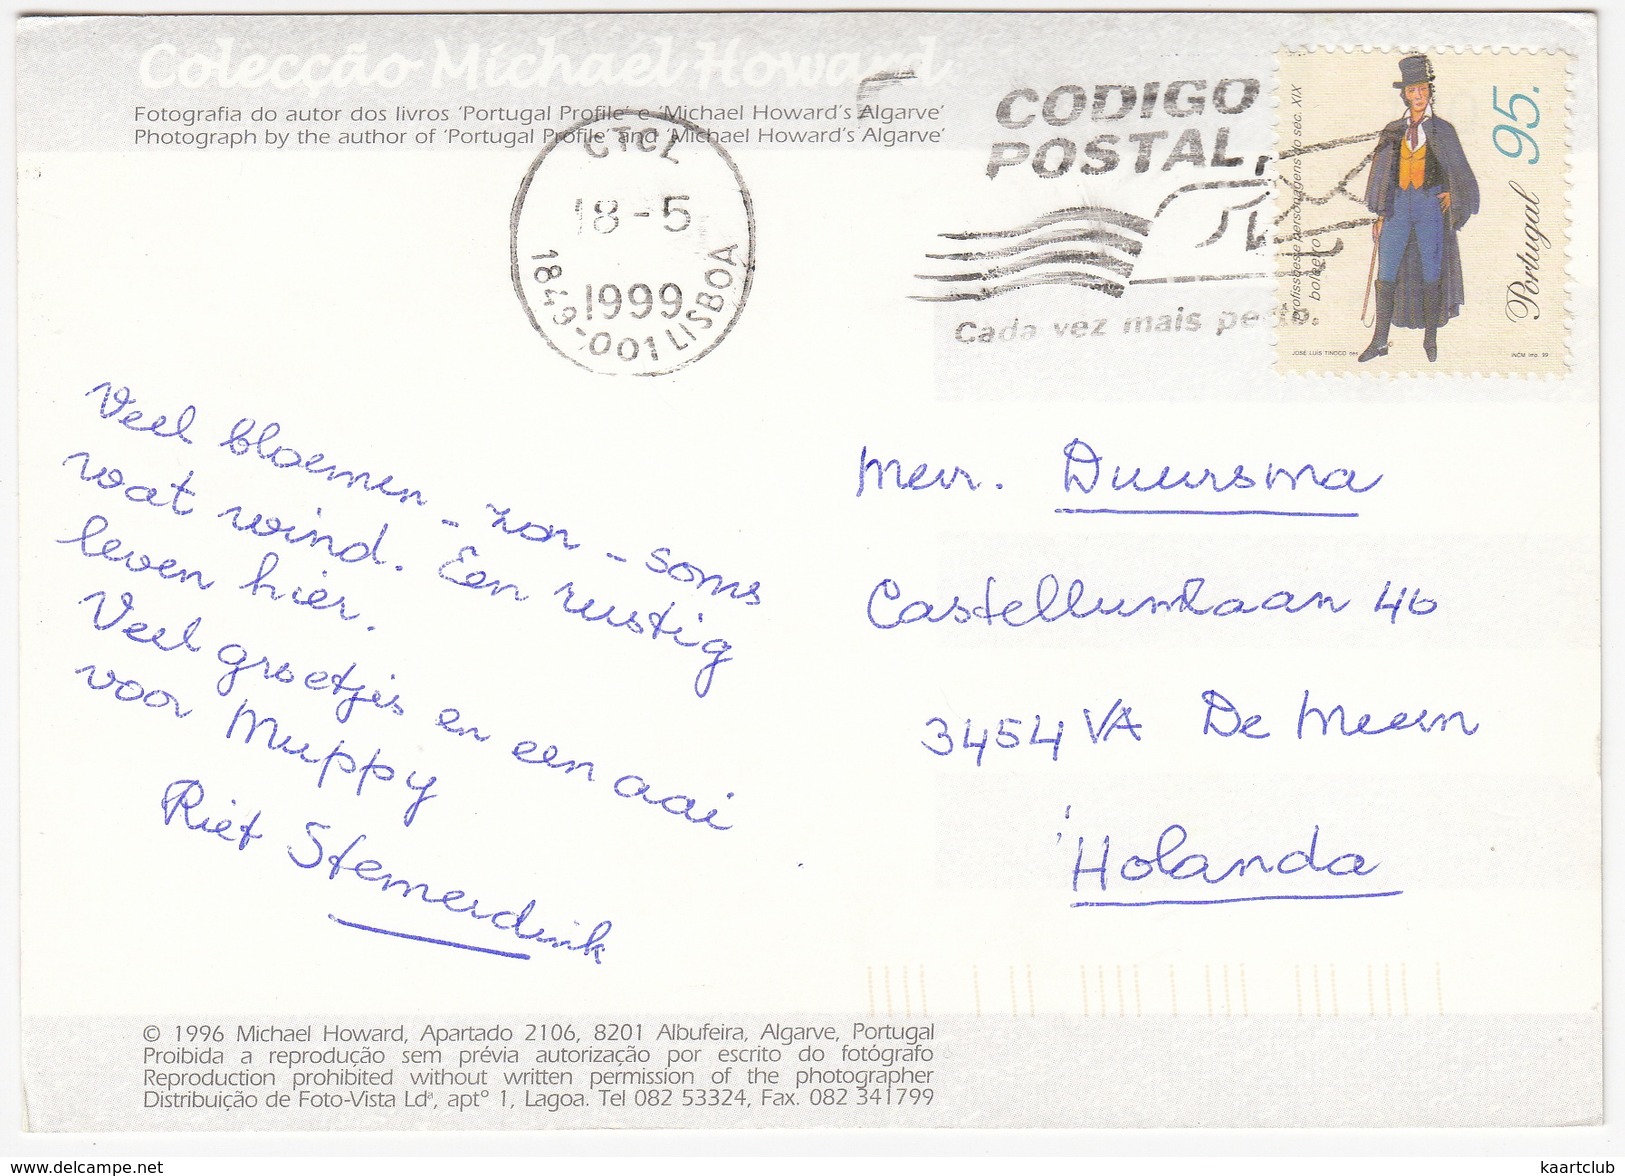 Colecção Michael Howard
Fotografia do autor dos livros 'Portugal Profile' e 'Michael Howard's Algarve'
Photograph by the author of 'Portugal Profile' and 'Michael Howard's Algarve'
CTCL
18-5
1999
1849-001 LISBOA
CODIGO
POSTAL,
Cada vez mais perto.
profissões e personagens do séc. XIX
boleeiro
95.
Portugal
JOSÉ LUIS TINOCO des.
INCM imp. 99
Veel bloemen - zon - soms
wat wind. Een rustig
leven hier.
Veel groetjes en een aai
voor Muppy
Riet Stemerdink
Mevr. Duursma
Castellumlaan 46
3454 VA De Meern
Holanda
© 1996 Michael Howard, Apartado 2106, 8201 Albufeira, Algarve, Portugal
Proibida a reprodução sem prévia autorização por escrito do fotógrafo
Reproduction prohibited without written permission of the photographer
Distribuição de Foto-Vista Ldª, aptº 1, Lagoa. Tel 082 53324, Fax. 082 341799
www.delcampe.net
kaartclub